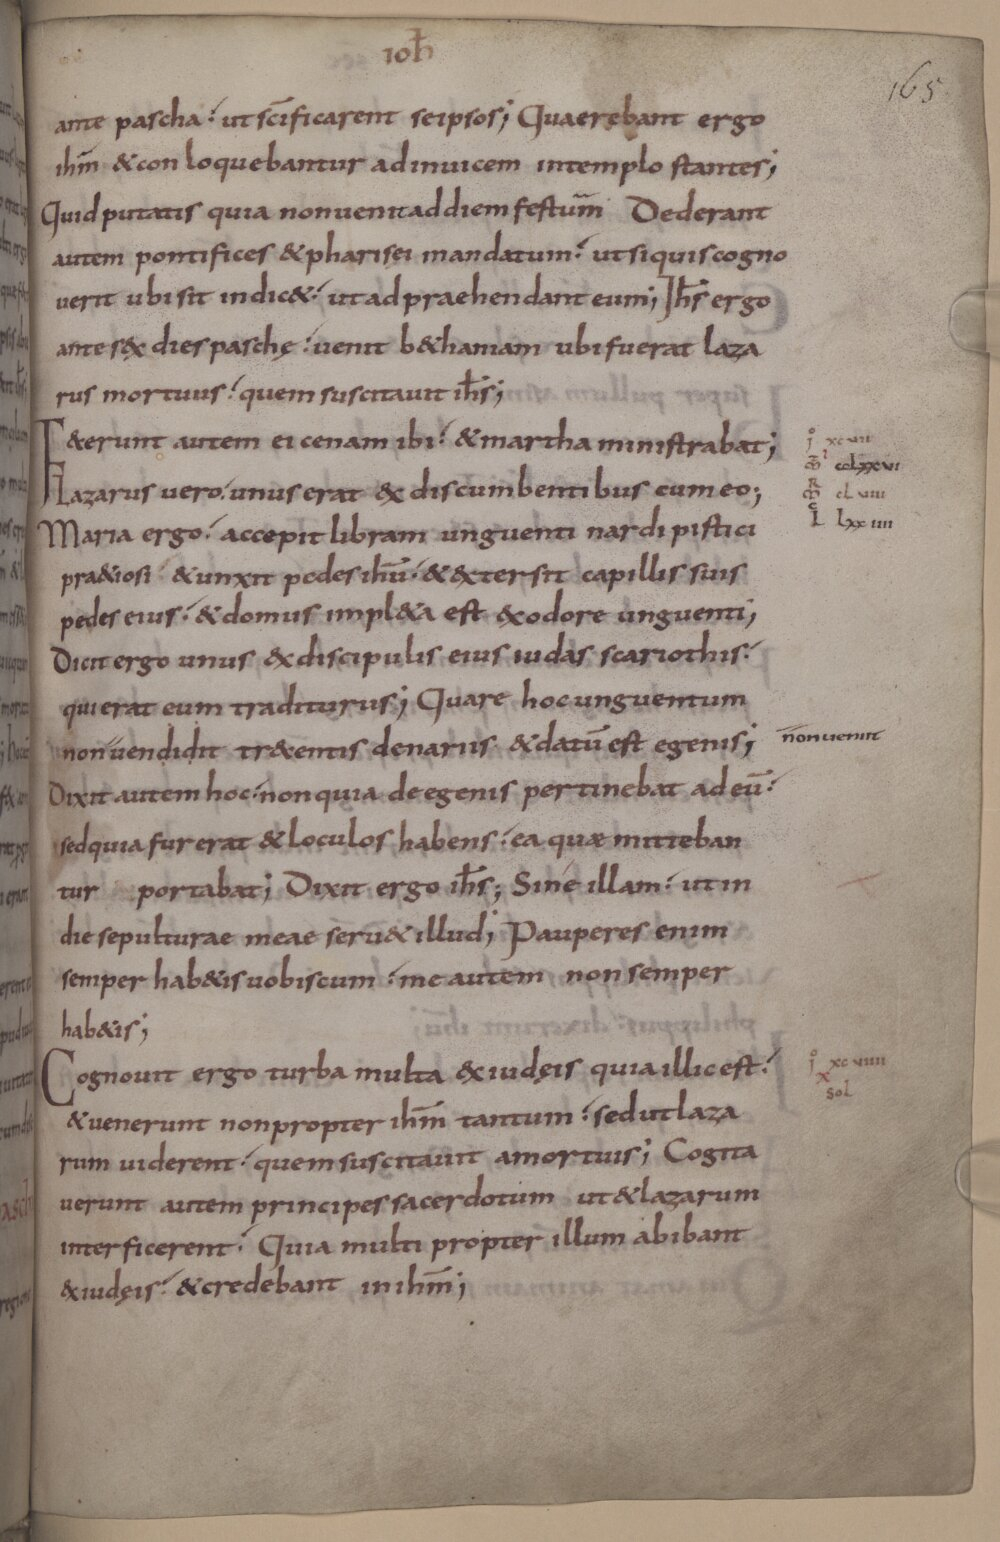 ioħ
165
ante pascha. ut sc̄ificarent seipsos; Quaerebant ergo
ihm̄ & conloquebantur adinuicem intemplo stantes;
Quid putatis quia nonuenit addiem festum̄ Dederant
autem pontifices & pharisei mandatum. utsiquis cogno
uerit ubi sit indic&. ut adpraehendant eum; Ihs̄ ergo
ante sex dies paschę. uenit b&haniam ubi fuerat laza
rus mortuus. quem suscitauit ihs̄;
F&erunt autem ei cenam ibi. & martha ministrabat;
Lazarus uero. unus erat ex discumbentibus cum eo;
Maria ergo. accepit libram unguenti nardi pistici
pr&iosi & unxit pedes ihū. & extersit capillis suis
pedes eius. & domus impl&a est exodore unguenti;
Dicit ergo unus ex discipulis eius iudas scariothis.
qui erat eum traditurus; Quare hoc unguentum
non uendidit tr&entis denariis & datū est egenis;
non ueniit
Dixit autem hoc. non quia de egenis pertinebat ad eū.
sed quia fur erat & loculos habens. ea quae mitteban
tur portabat; Dixit ergo ihs̄; Sine illam. ut in
die sepulturae meae seru& illud; Pauperes enim
semper hab&is uobiscum. me autem non semper
hab&is;
Cognouit ergo turba multa ex iudęis quia illic est.
& uenerunt non propter ihm̄ tantum. sed ut laza
rum uiderent. quem suscitauit amortuis; Cogita
uerunt autem principes sacerdotum ut & lazarum
interficerent. Quia multi propter illum abibant
ex iudęis. & credebant in ihm̄;
sol